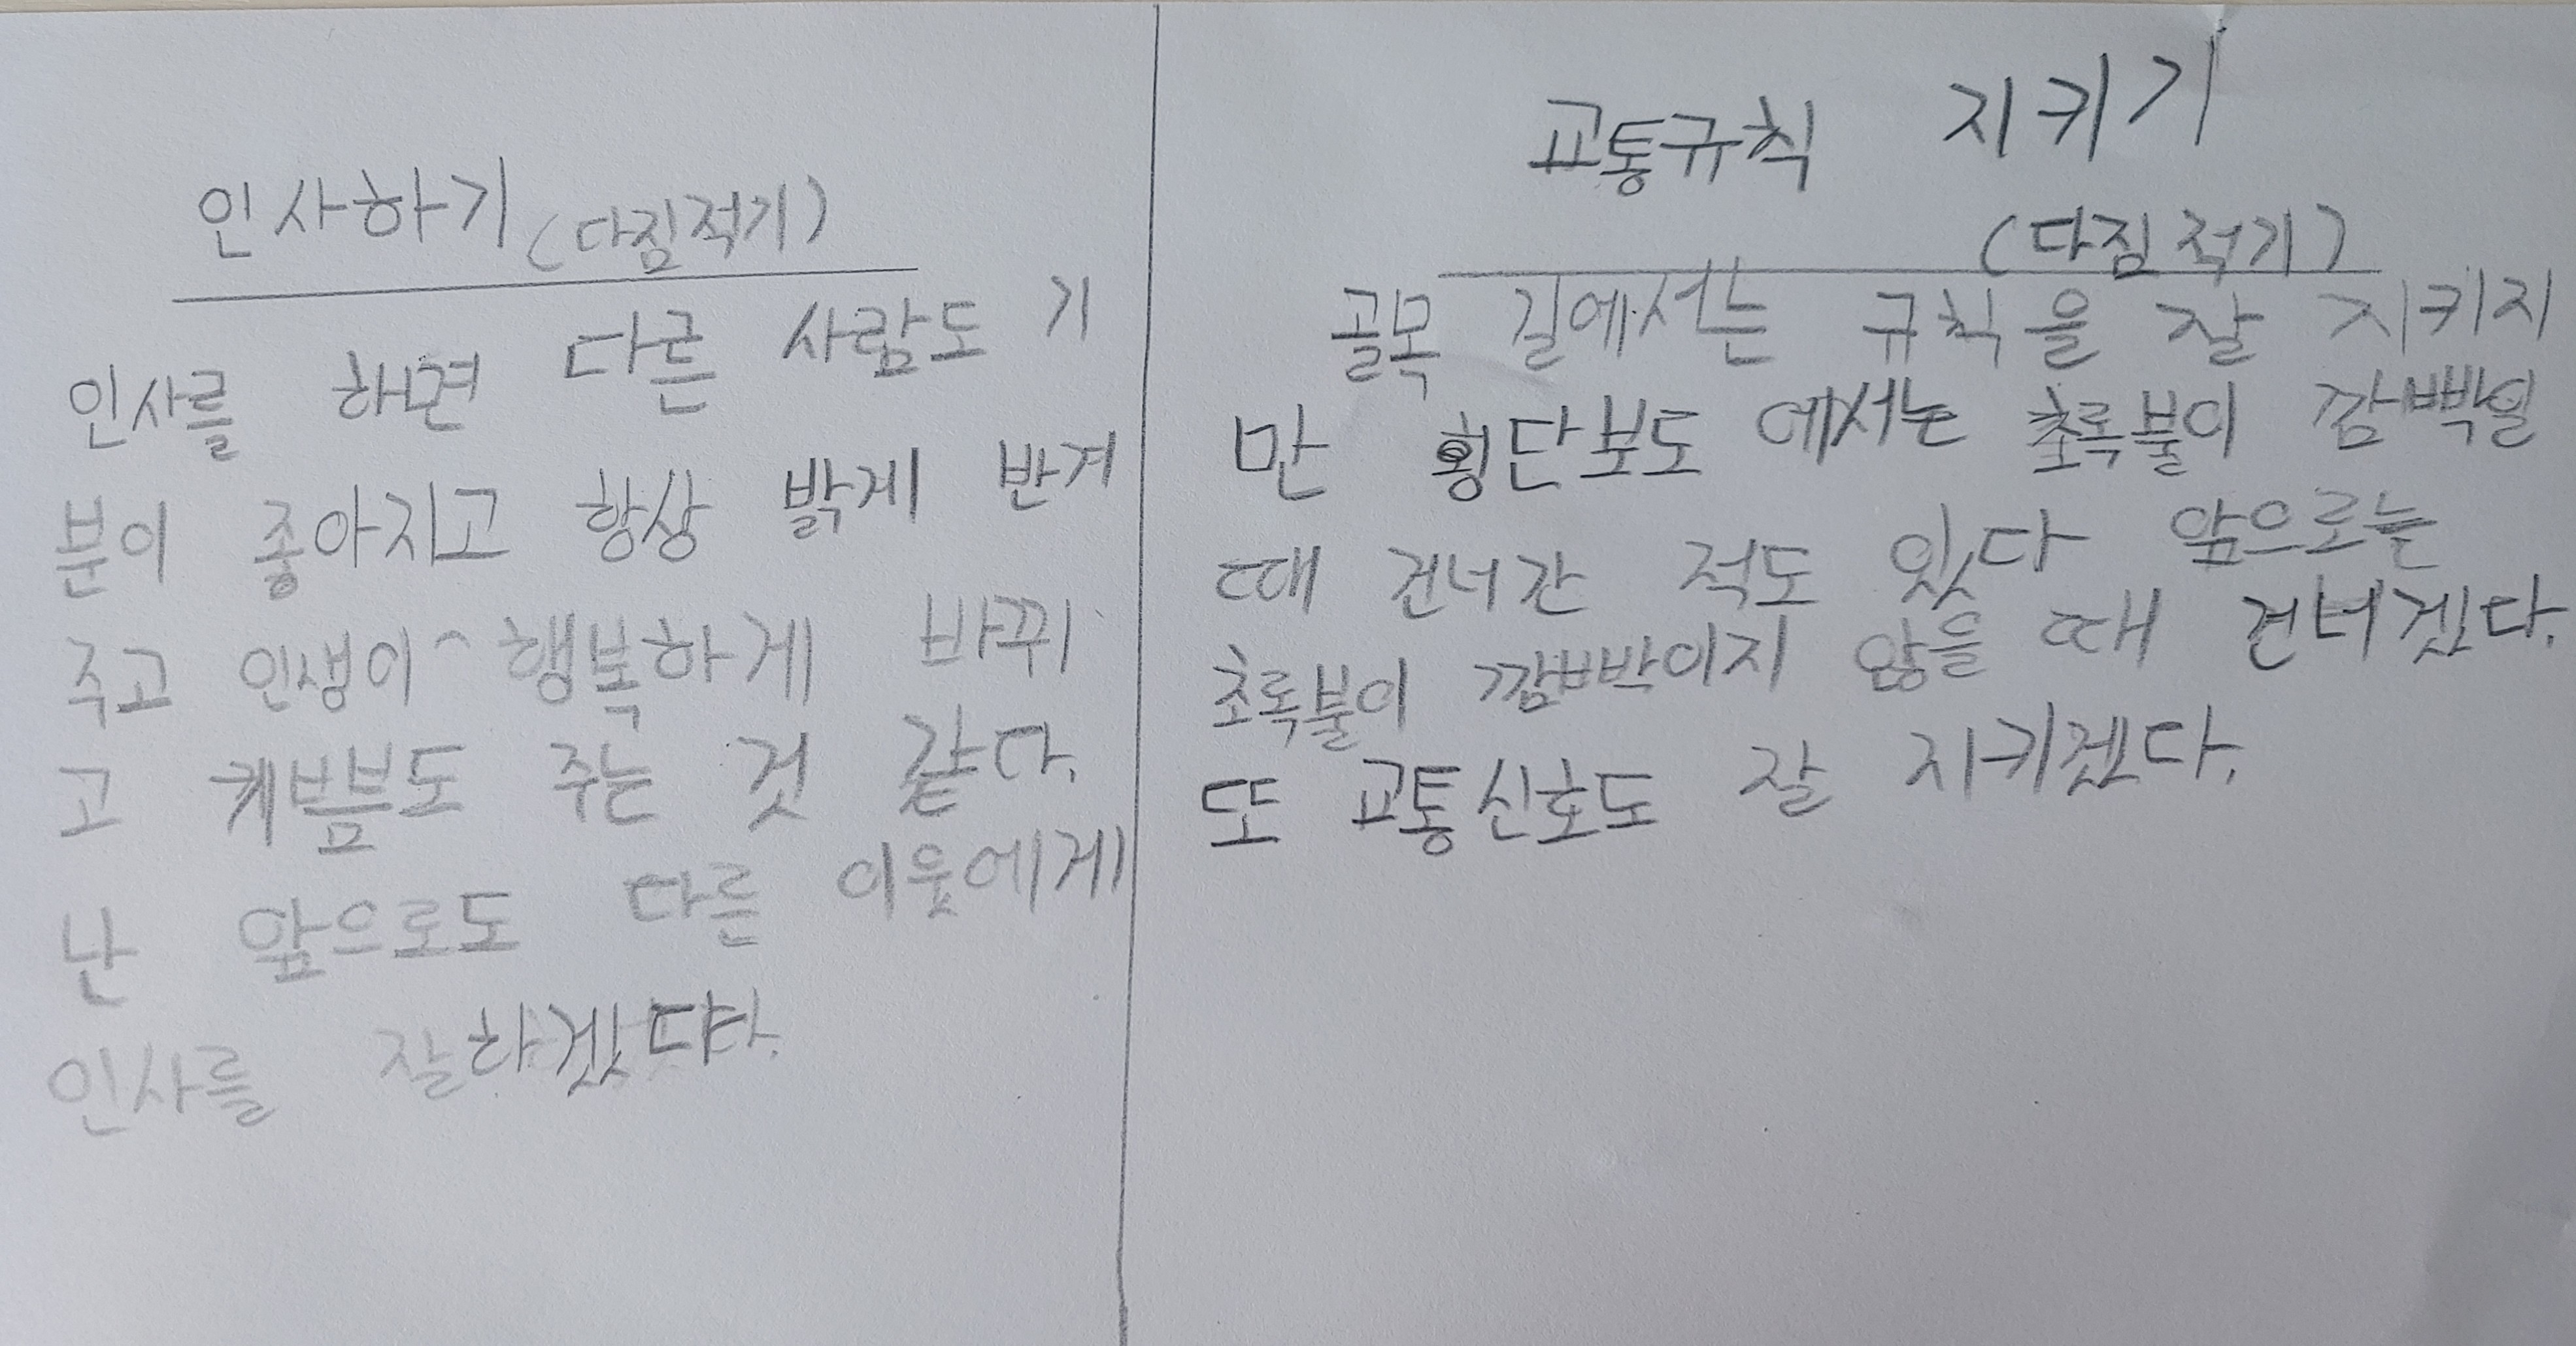 인사하기 (다짐적기)
인사를 하면 다른 사람도 기
분이 좋아지고 항상 밝게 반겨
주고 인생이 행복하게 바뀌
고 도 주는 것 같다.
난 앞으로도 다른 이웃에게
인사를 잘하겠다.
교통규칙 지키기
(다짐 적기)
골목 길에서는 규칙을 잘 지키지
만 횡단보도 에서는 초록불이 깜빡일
때 건너간 적도 있다 앞으로는
초록불이 깜빡이지 않을 때 건너겠다.
또 교통신호도 잘 지키겠다.